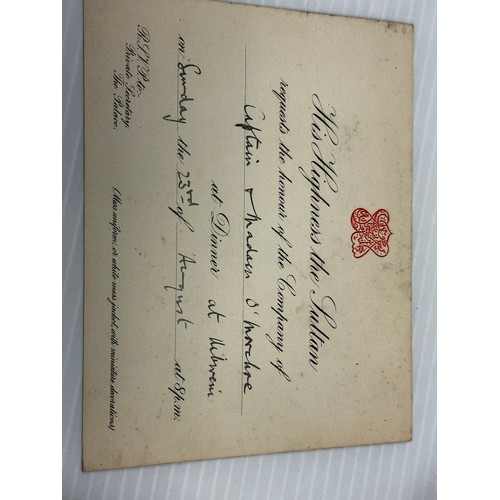 His Highness the Sultan
requests the honour of the Company of
Captain & Madam O'Morchoe
at Dinner at Kibweni
on Sunday the 23rd of August at 8 p.m.
R.S.V.P. to:
Private Secretary,
The Palace.
(Mess uniform, or white mess jacket, with miniature decorations)